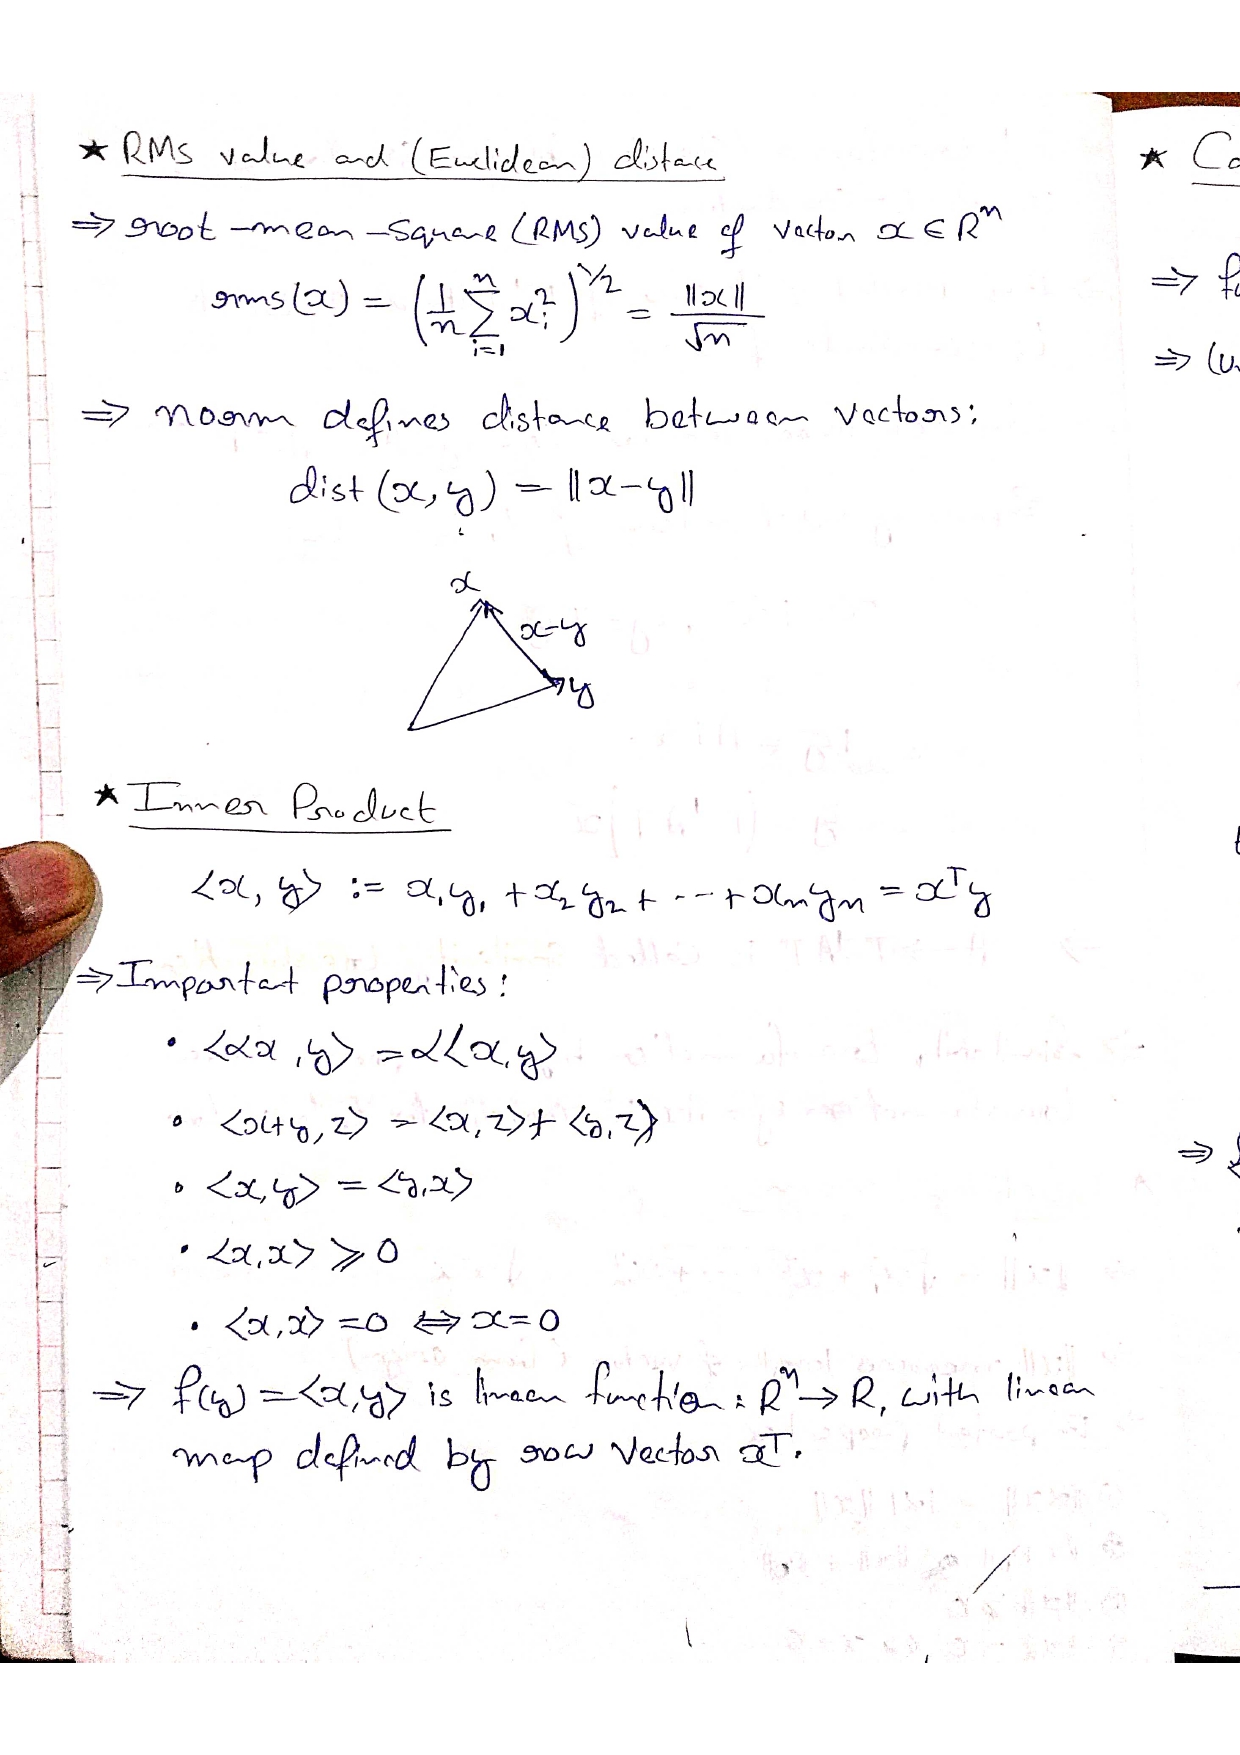 ★ RMS value and (Euclidean) distace
⇒ root-mean-square (RMS) value of vector x ∈ Rⁿ
rms(x) = (1/n ∑_{i=1}^{n} x_i²)^{1/2} = ||x|| / √n
⇒ norm defines distance between vectors:
dist (x, y) = ||x-y||
x
x-y
y
★ Inner Product
<x, y> := x₁y₁ + x₂y₂ + --- + xₙyₙ = xᵀy
⇒ Important properties:
• <αx, y> = α<x, y>
• <x+y, z> = <x, z> + <y, z>
• <x, y> = <y, x>
• <x, x> ⩾ 0
• <x, x> = 0 ⇔ x = 0
⇒ f(y) = <x, y> is linear function : Rⁿ → R, with linear
map defined by row vector xᵀ.
★ Co
⇒
⇒ (u
⇒